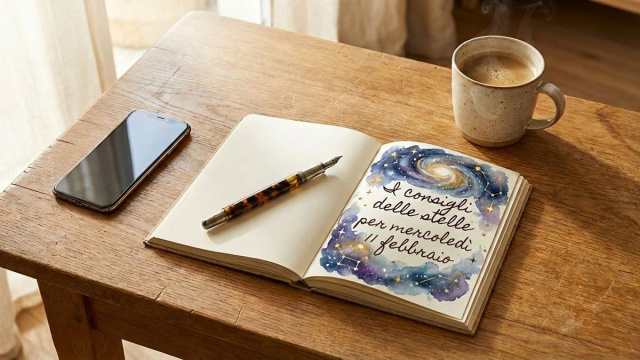 I consigli
delle stelle
per mercoledì
11 febbraio